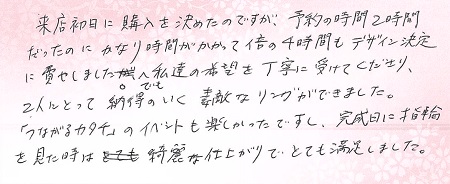 来店初日に購入を決めたのですが、予約の時間2時間
だったのにかなり時間がかかって倍の4時間もデザイン決定
に費やしました。でも私達の希望を丁寧に受けてくださり、
2人にとって納得のいく素敵なリングができました。
「つながるカタチ」のイベントも楽しかったですし、完成日に指輪
を見た時は綺麗な仕上がりでとても満足しました。